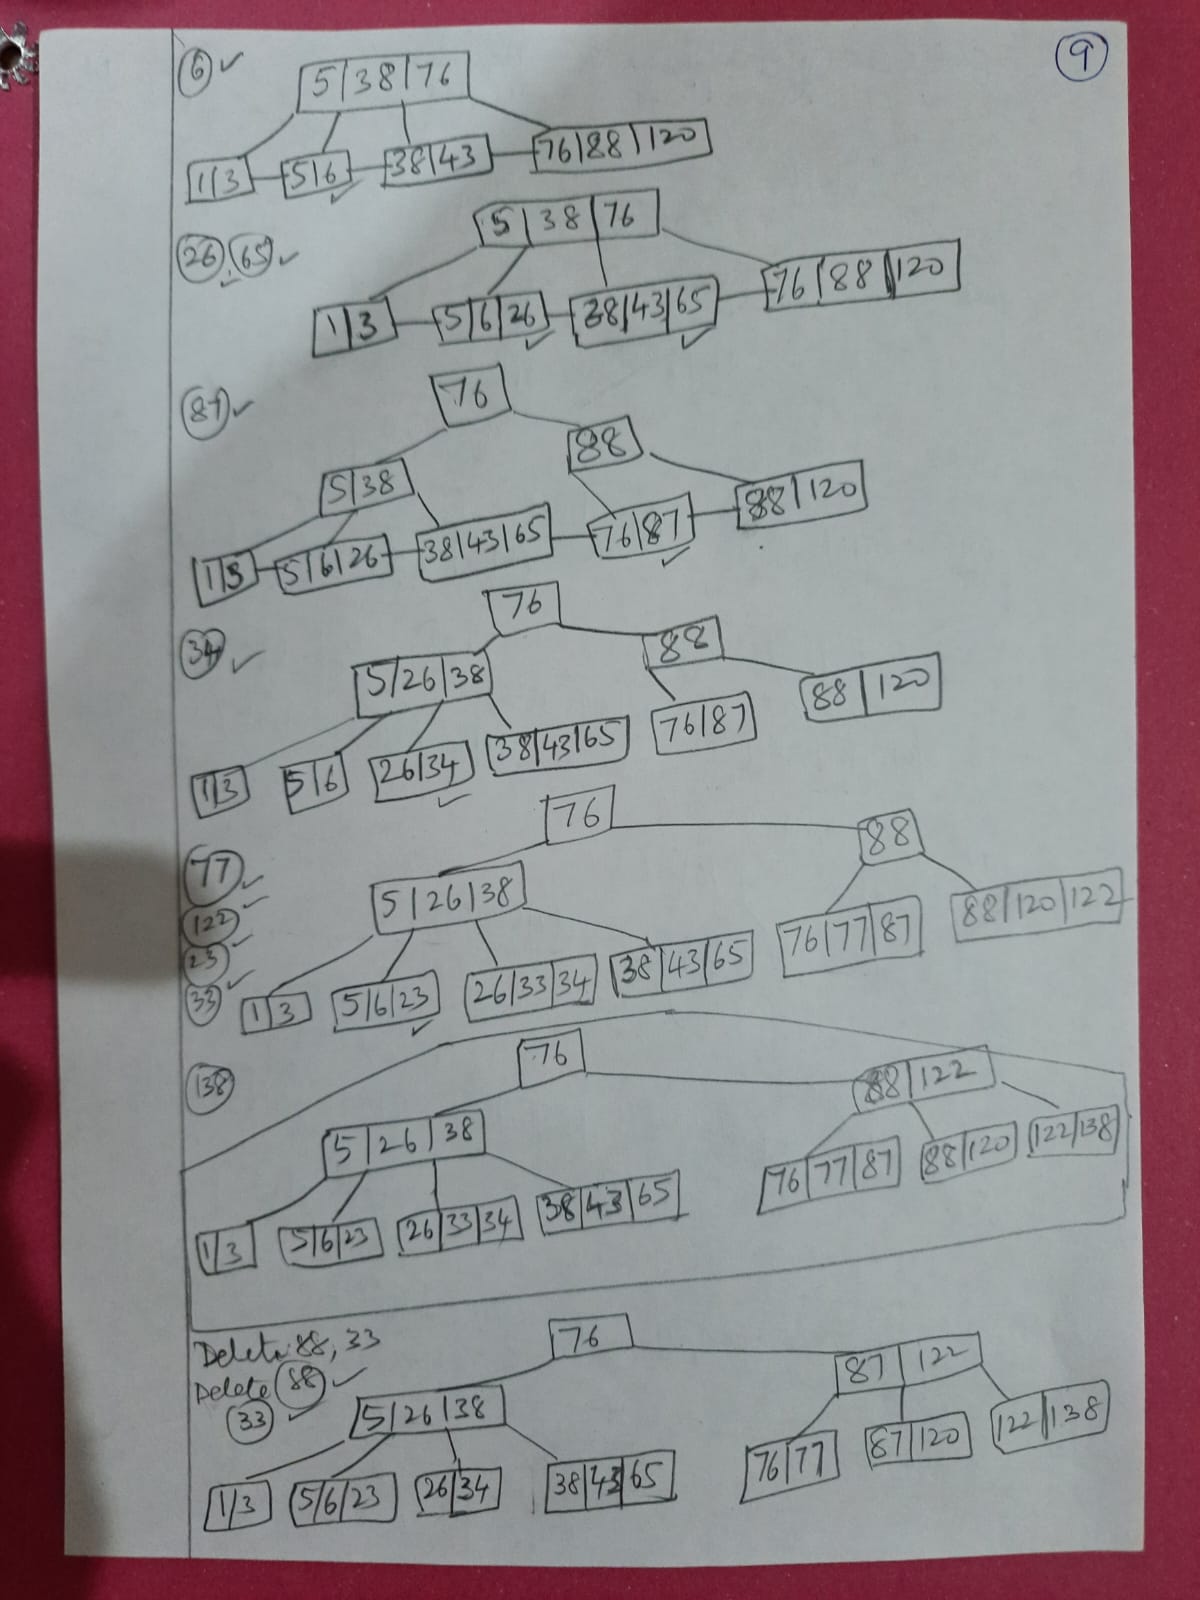 9
6 ✓
5|38|76
1|3 5|6 38|43 76|88|120
✓
26, 65 ✓
5|38|76
1|3 5|6|26 38|43|65 76|88|120
✓ ✓
87 ✓
76
5|38 88
1|3 5|6|26 38|43|65 76|87 88|120
✓
34 ✓
76
5|26|38 88
1|3 5|6 26|34 38|43|65 76|87 88|120
✓
77 ✓
122 ✓
23 ✓
33 ✓
76
5|26|38 88
1|3 5|6|23 26|33|34 38|43|65 76|77|87 88|120|122
✓
138
76
5|26|38 88|122
1|3 5|6|23 26|33|34 38|43|65 76|77|87 88|120 122|138
Delete 88, 33
Delete 88 ✓
33 ✓
76
5|26|38 87|122
1|3 5|6|23 26|34 38|43|65 76|77 87|120 122|138